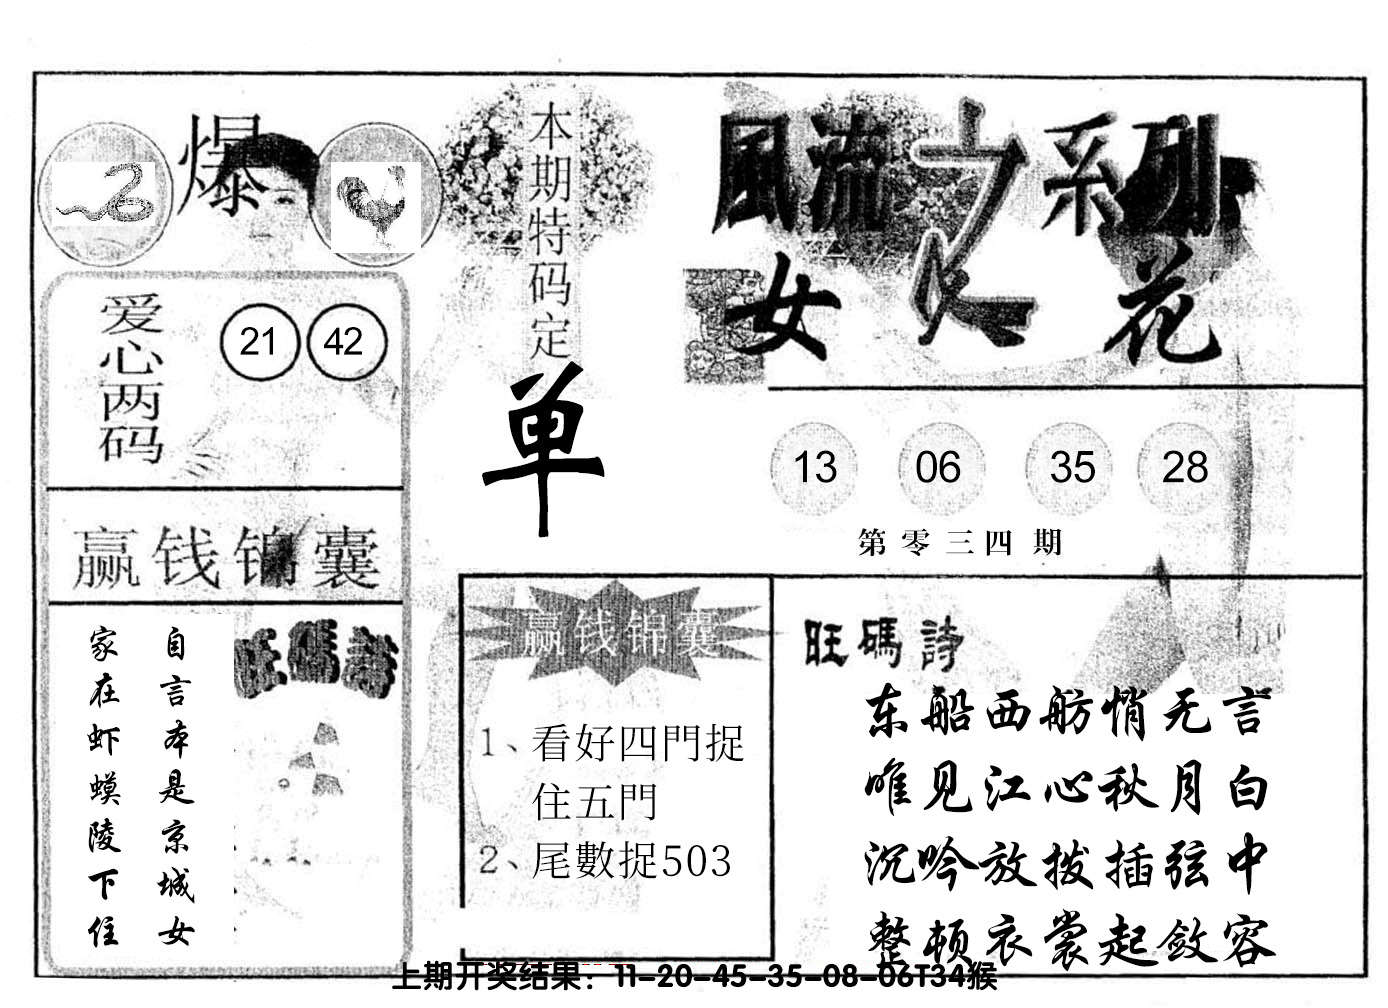 爆
本期特码定
单
風流之系列
女人花
爱心两码
21 42
13 06 35 28
第零三四期
赢钱锦囊
旺碼詩
自言本是京城女
家在虾蟆陵下住
赢钱锦囊
1、看好四門捉
住五門
2、尾數捉503
旺碼詩
东船西舫悄无言
唯见江心秋月白
沉吟放拨插弦中
整顿衣裳起敛容
上期开奖结果：11-20-45-35-08-06T34猴